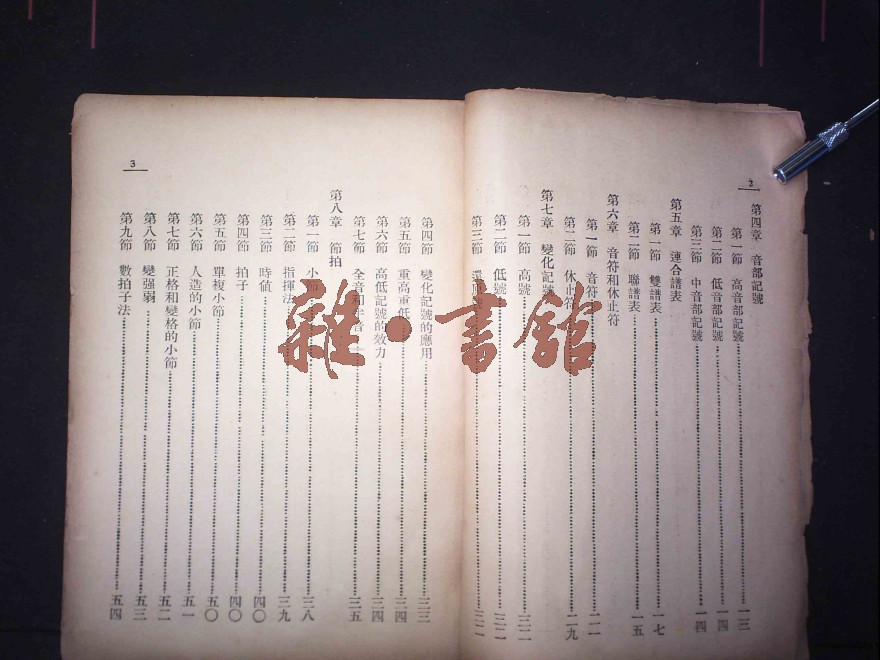 2
第四章　音部記號
第一節　高音部記號……一三
第二節　低音部記號……一四
第三節　中音部記號……一四
第五章　連合譜表
第一節　雙譜表……一七
第二節　聯譜表……一五
第六章　音符和休止符
第一節　音符……二一
第二節　休止符……二九
第七章　變化記號
第一節　高號……三二
第二節　低號……三二
第三節
3
第四節　變化記號的應用……三三
第五節　重高重低……三四
第六節　高低記號的效力……三四
第七節　全音和……三五
第八章　節拍
第一節　小節……三八
第二節　指揮法……三九
第三節　時値……四〇
第四節　拍子……四〇
第五節　單複小節……五〇
第六節　人造的小節……五一
第七節　正格和變格的小節……五二
第八節　變强弱……五三
第九節　數拍子法……五四
雜·書館